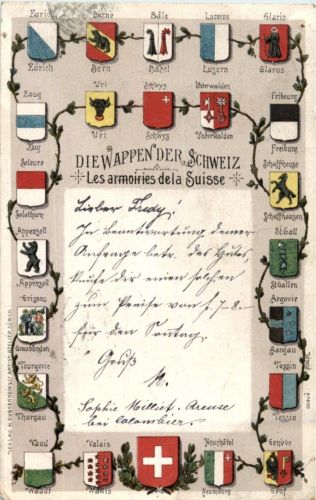 Zurich Berne Bâle Lucerne Glaris
Zürich Bern Basel Luzern Glarus
Zoug Uri Schwyz Unterwalden Fribourg
Zug Uri Schwyz Unterwalden Freiburg
DIE WAPPEN DER SCHWEIZ
Les armoiries de la Suisse
Soleure Schaffhouse
Solothurn Schaffhausen
Appenzell St. Gall
Appenzell St.Gallen
Grisons Argovie
Graubünden Aargau
Turgovie Tessin
Thurgau Tessin
Vaud Valais Neuchâtel Genève
Waadt Wallis Neuenburg Genf
Lieber Fredy!
In Beantwortung deiner
Anfrage betr. des
dir einen solchen
zum Preise von f. 7-8-
für den Sontag.
Gruß
Sophie Milliet. Areuse
bei Colombier.